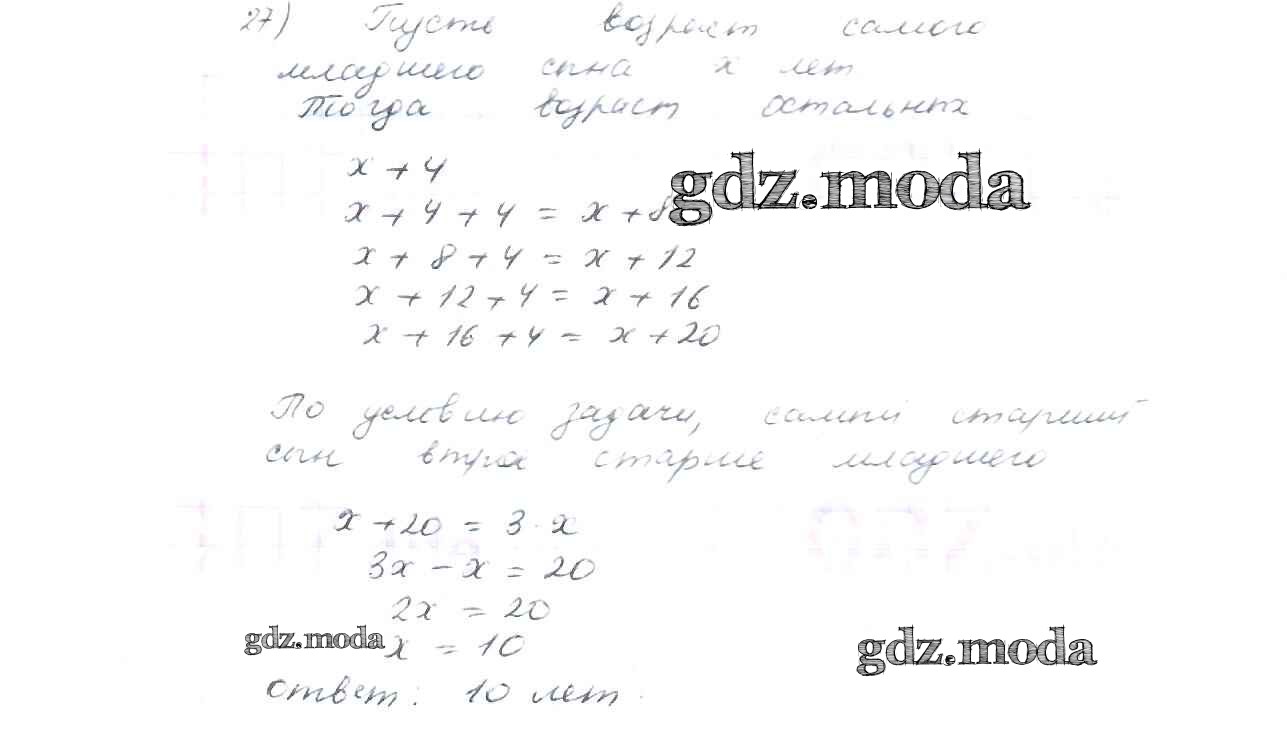 27) Пусть возраст самого
младшего сына x лет
Тогда возраст остальных
x + 4
gdz.moda
x + 4 + 4 = x + 8
x + 8 + 4 = x + 12
x + 12 + 4 = x + 16
x + 16 + 4 = x + 20
По условию задачи, самый старший
сын втрое старше младшего
x + 20 = 3 · x
3x - x = 20
2x = 20
gdz.moda
x = 10
gdz.moda
Ответ: 10 лет.